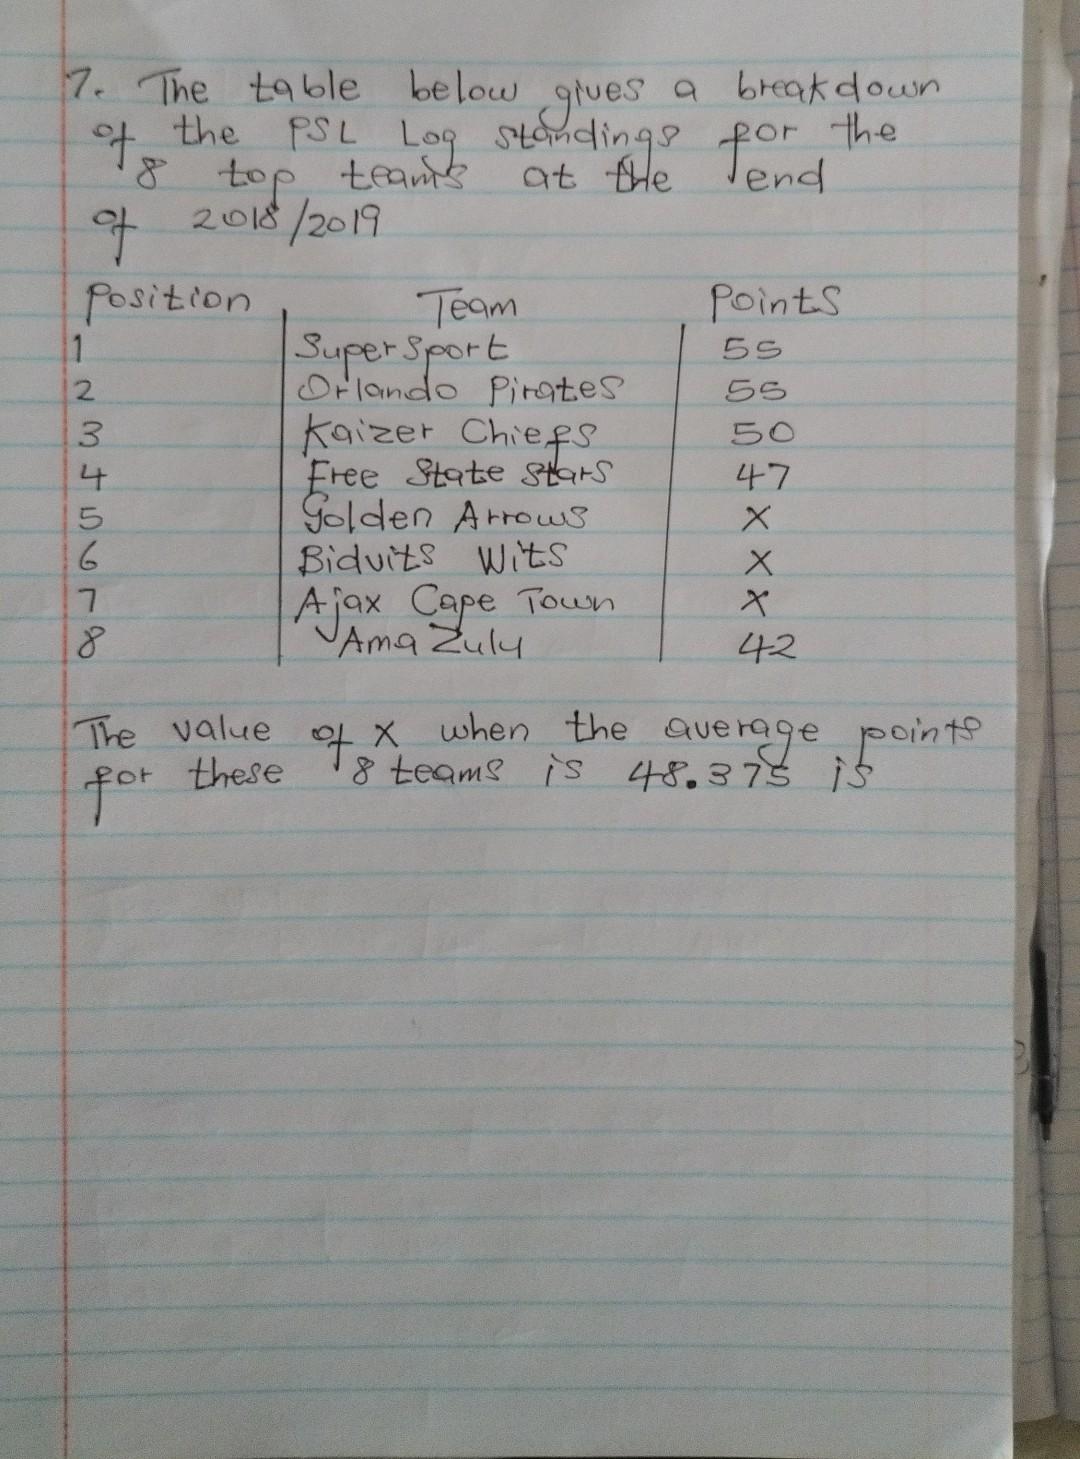 7. The table below gives a breakdown
of the PSL Log standings for the
8 top teams at the end
of 2018/2019
Position Team Points
1 SuperSport 55
2 Orlando Pirates 55
3 Kaizer Chiefs 50
4 Free State Stars 47
5 Golden Arrows X
6 Bidvits Wits X
7 Ajax Cape Town X
8 Ama Zulu 42
The value of X when the average points
for these 8 teams is 48.375 is